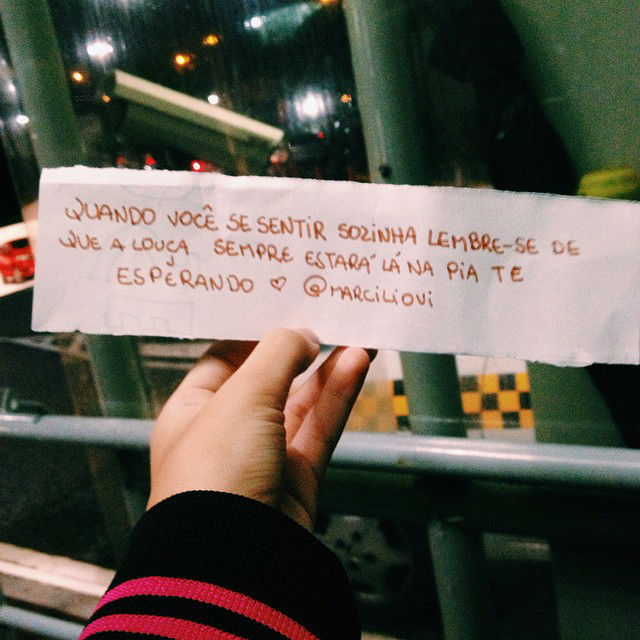 QUANDO VOCÊ SE SENTIR SOZINHA LEMBRE-SE DE
QUE A LOUÇA SEMPRE ESTARÁ LÁ NA PIA TE
ESPERANDO ♡ @MARCILIOVI